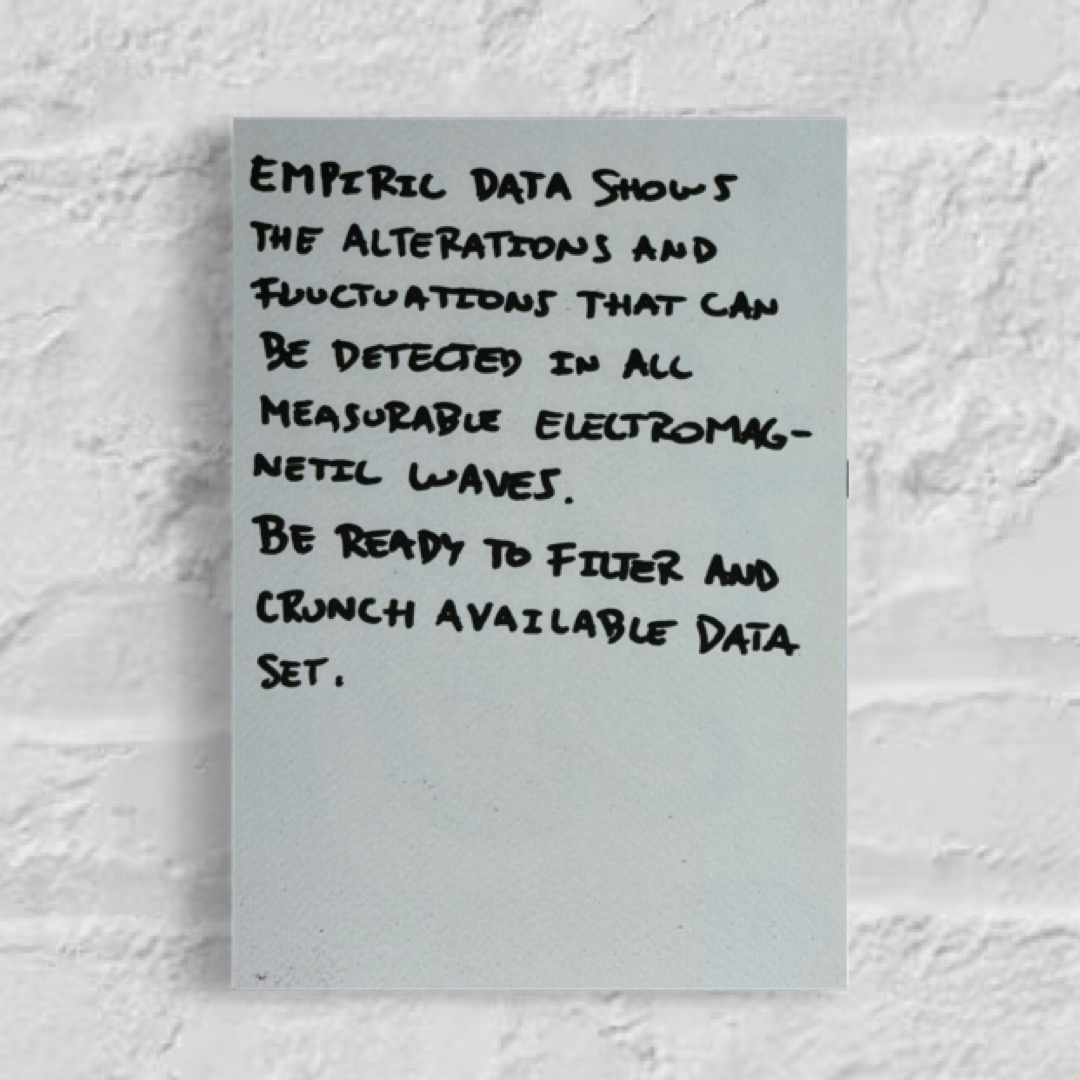 EMPIRIC DATA SHOWS
THE ALTERATIONS AND
FLUUCTUATIONS THAT CAN
BE DETECTED IN ALL
MEASURABLE ELECTROMAG-
NETIC WAVES.
BE READY TO FILTER AND
CRUNCH AVAILABLE DATA
SET.